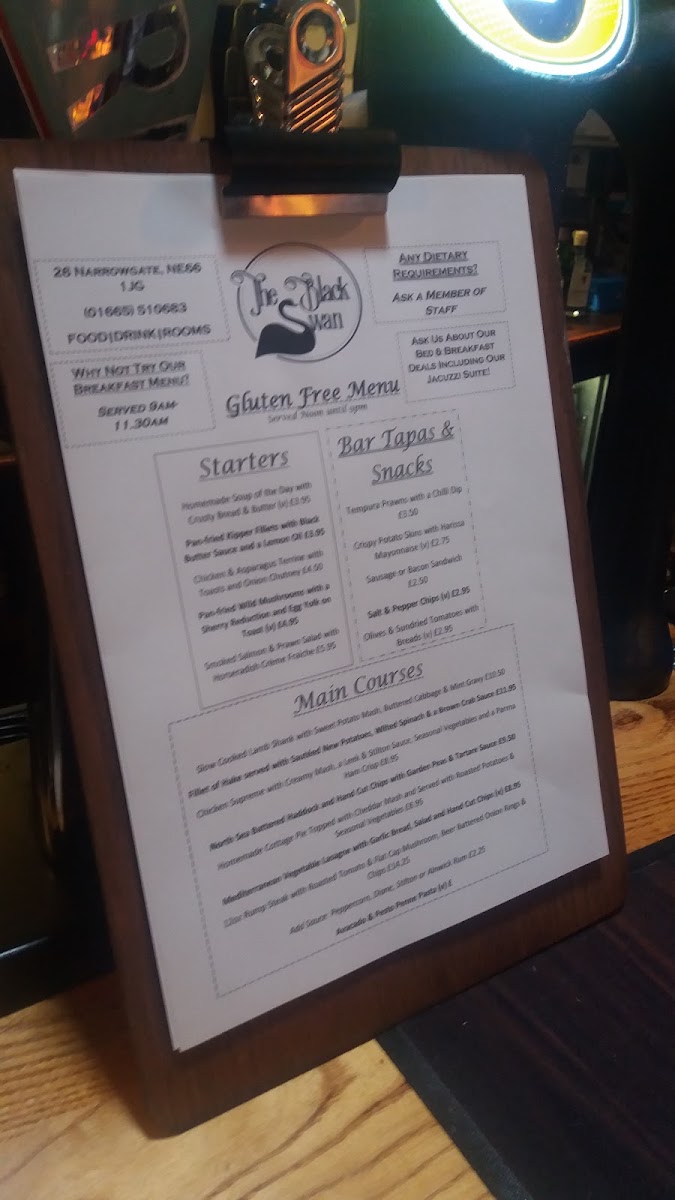 26 Narrowgate, NE66
1JG
(01665) 510683
Food|Drink|Rooms
Why Not Try Our
Breakfast Menu?
Served 9am-
11.30am
The Black
Swan
Any Dietary
Requirements?
Ask a Member of
Staff
Ask Us About Our
Bed & Breakfast
Deals Including Our
Jacuzzi Suite!
Gluten Free Menu
Served Noon until 9pm
Starters
Homemade Soup of the Day with
Crusty Bread & Butter (v) £3.95
Pan-fried Kipper Fillets with Black
Butter Sauce and a Lemon Oil £3.95
Chicken & Asparagus Terrine with
Toasts and Onion Chutney £4.50
Pan-fried Wild Mushrooms with a
Sherry Reduction and Egg Yolk on
Toast (v) £4.95
Smoked Salmon & Prawn Salad with
Horseradish Crème Fraiche £5.95
Bar Tapas &
Snacks
Tempura Prawns with a Chilli Dip
£3.50
Crispy Potato Skins with Harissa
Mayonnaise (v) £2.75
Sausage or Bacon Sandwich
£2.50
Salt & Pepper Chips (v) £2.95
Olives & Sundried Tomatoes with
Breads (v) £2.95
Main Courses
Slow Cooked Lamb Shank with Sweet Potato Mash, Buttered Cabbage & Mint Gravy £10.50
Fillet of Hake served with Sautéed New Potatoes, Wilted Spinach & a Brown Crab Sauce £11.95
Chicken Supreme with Creamy Mash, a Leek & Stilton Sauce, Seasonal Vegetables and a Parma
Ham Crisp £8.95
North Sea Battered Haddock and Hand Cut Chips with Garden Peas & Tartare Sauce £9.50
Homemade Cottage Pie Topped with Cheddar Mash and Served with Roasted Potatoes &
Seasonal Vegetables £8.95
Mediterranean Vegetable Lasagne with Garlic Bread, Salad and Hand Cut Chips (v) £8.95
12oz Rump Steak with Roasted Tomato & Flat Cap Mushroom, Beer Battered Onion Rings &
Chips £14.25
Add Sauce: Peppercorn, Diane, Stilton or Alnwick Rum £2.25
Avocado & Pesto Penne Pasta (v) £